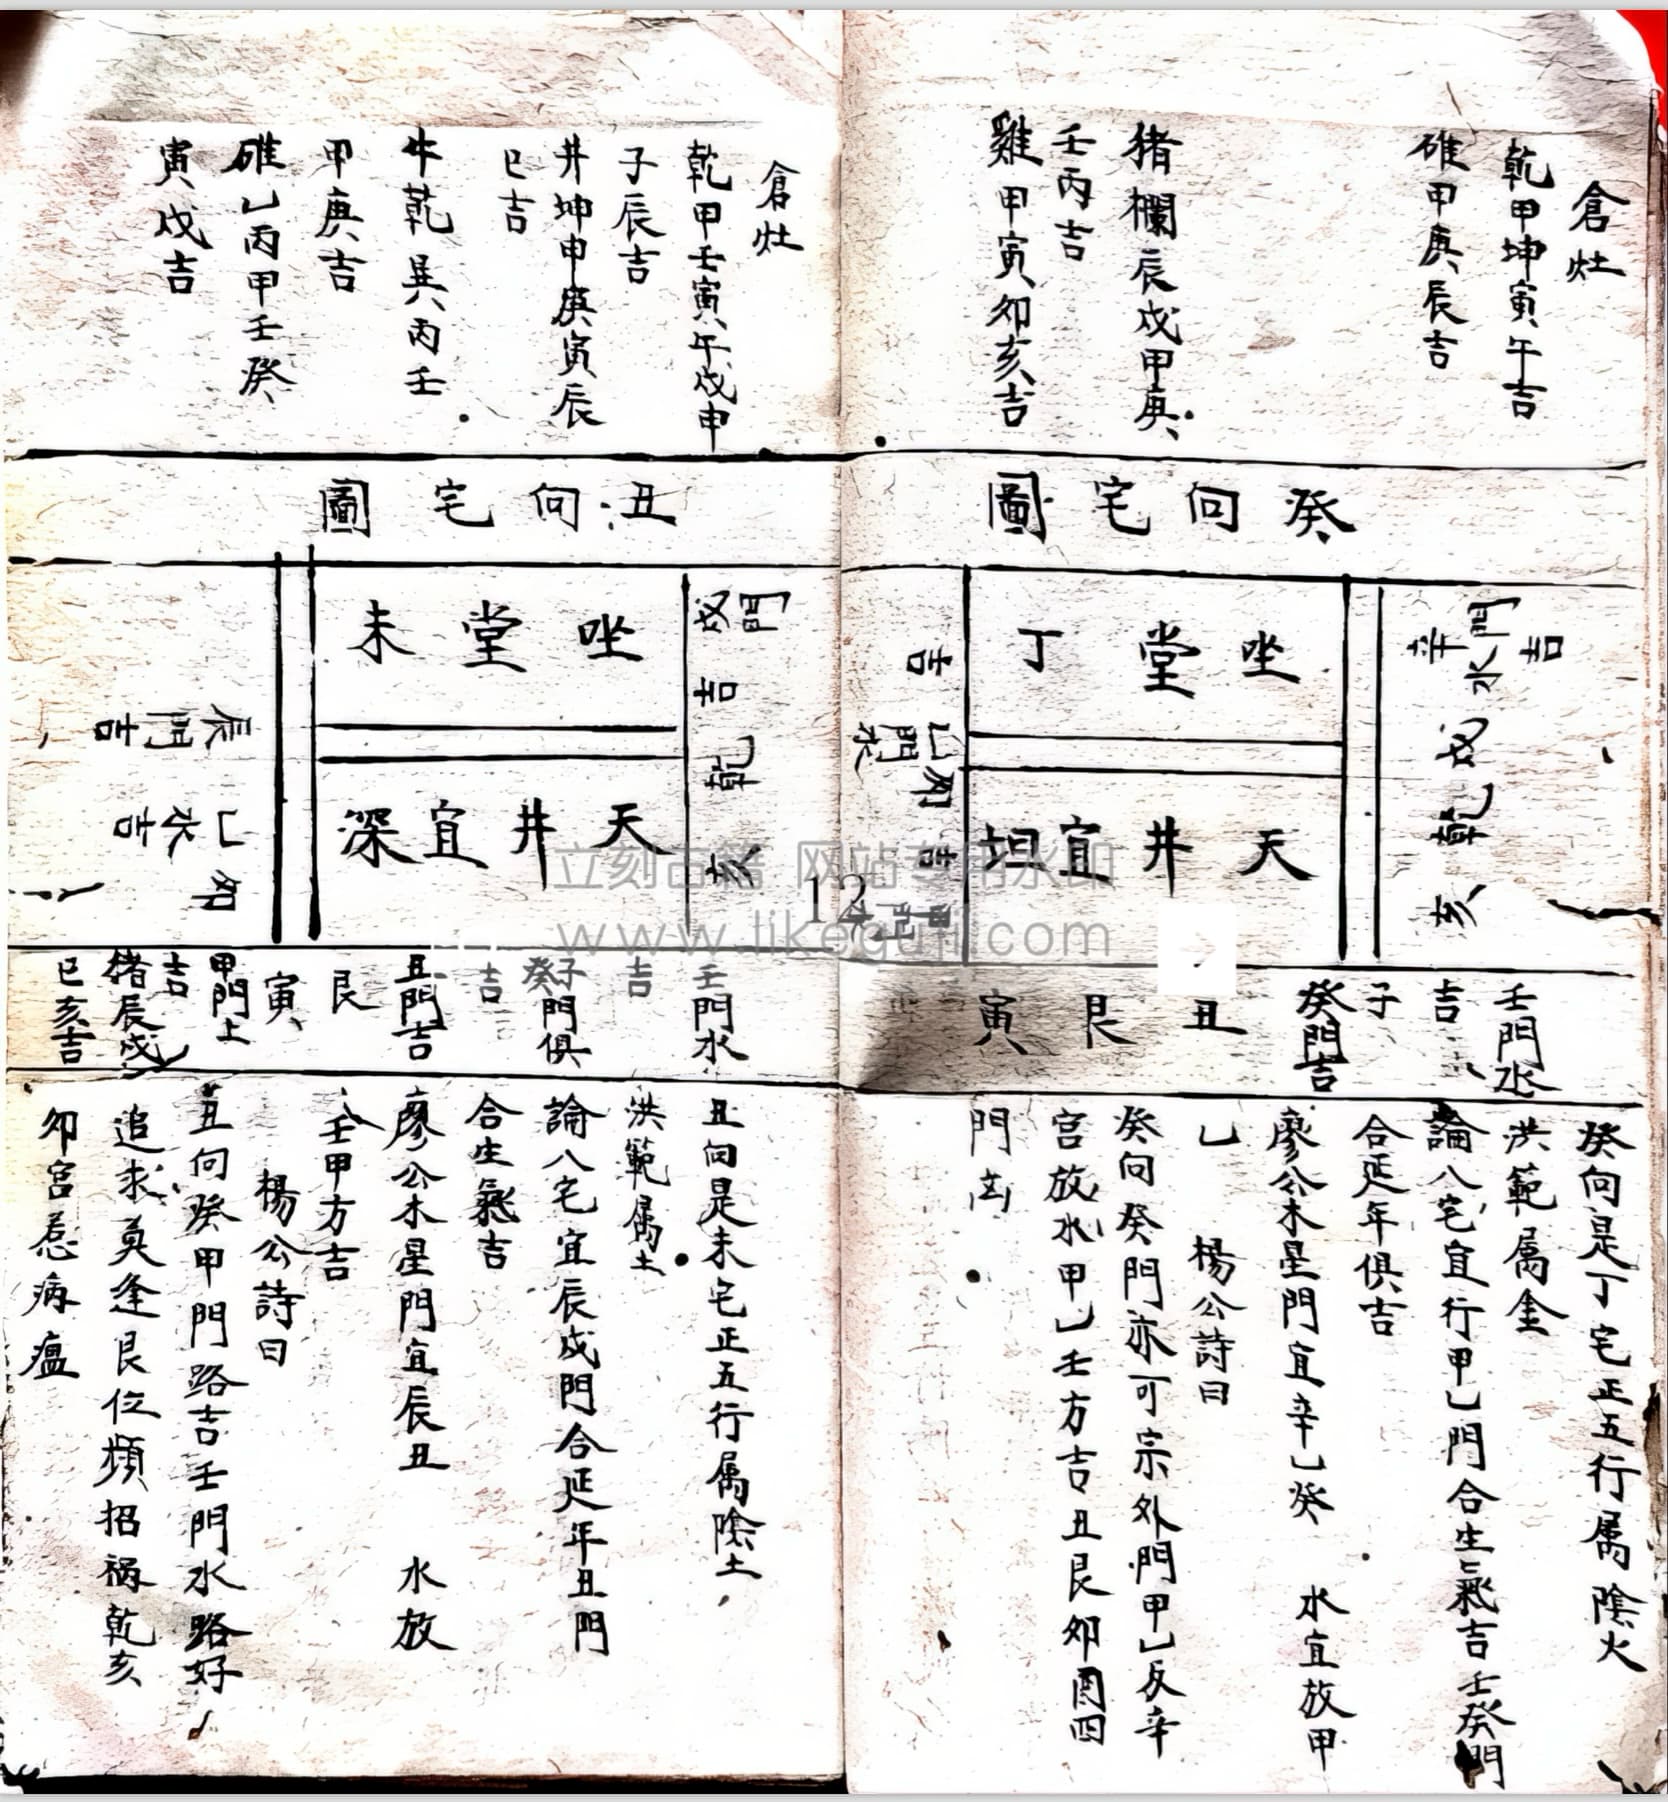 倉灶
乾甲坤寅午吉
碓甲庚辰吉
猪欄辰戍甲庚
壬丙吉
雞甲寅卯亥吉
癸向宅圖
坐堂丁
天井宜坦
門吉
辛水
戍
乾
亥
吉
乙門水
卯
吉
甲門水
壬門水
吉
子
癸門吉
丑
艮
寅
癸向是丁宅正五行属陰火
洪範属金
論八宅宜行甲乙門合生氣吉壬癸門
合延年俱吉
廖公木星門宜辛乙癸 水宜放甲
乙 楊公詩曰
癸向癸門亦可宗外門甲乙反辛
宫放水甲乙壬方吉丑艮卯酉四
門凶
倉灶
乾甲壬寅午戍申
子辰吉
井坤申庚寅辰
巳吉
牛乾巽丙壬
甲庚吉
碓乙丙甲壬癸
寅戍吉
丑向宅圖
坐堂未
天井宜深
門
戍
吉
乾
亥
辰門吉
乙水吉
卯
壬門水
吉
子癸門俱
吉
丑門吉
艮
寅
甲門上
吉
猪辰戍
巳亥吉
丑向是未宅正五行属陰土
洪範属土
論八宅宜辰戍門合延年丑門
合生氣吉
廖公木星門宜辰丑 水放
壬甲方吉
楊公詩曰
丑向癸甲門路吉壬門水路好
追求莫逢艮位頻招祸乾亥
卯宫惹病瘟
立刻古籍 网站专用水印
www.likeguji.com
12